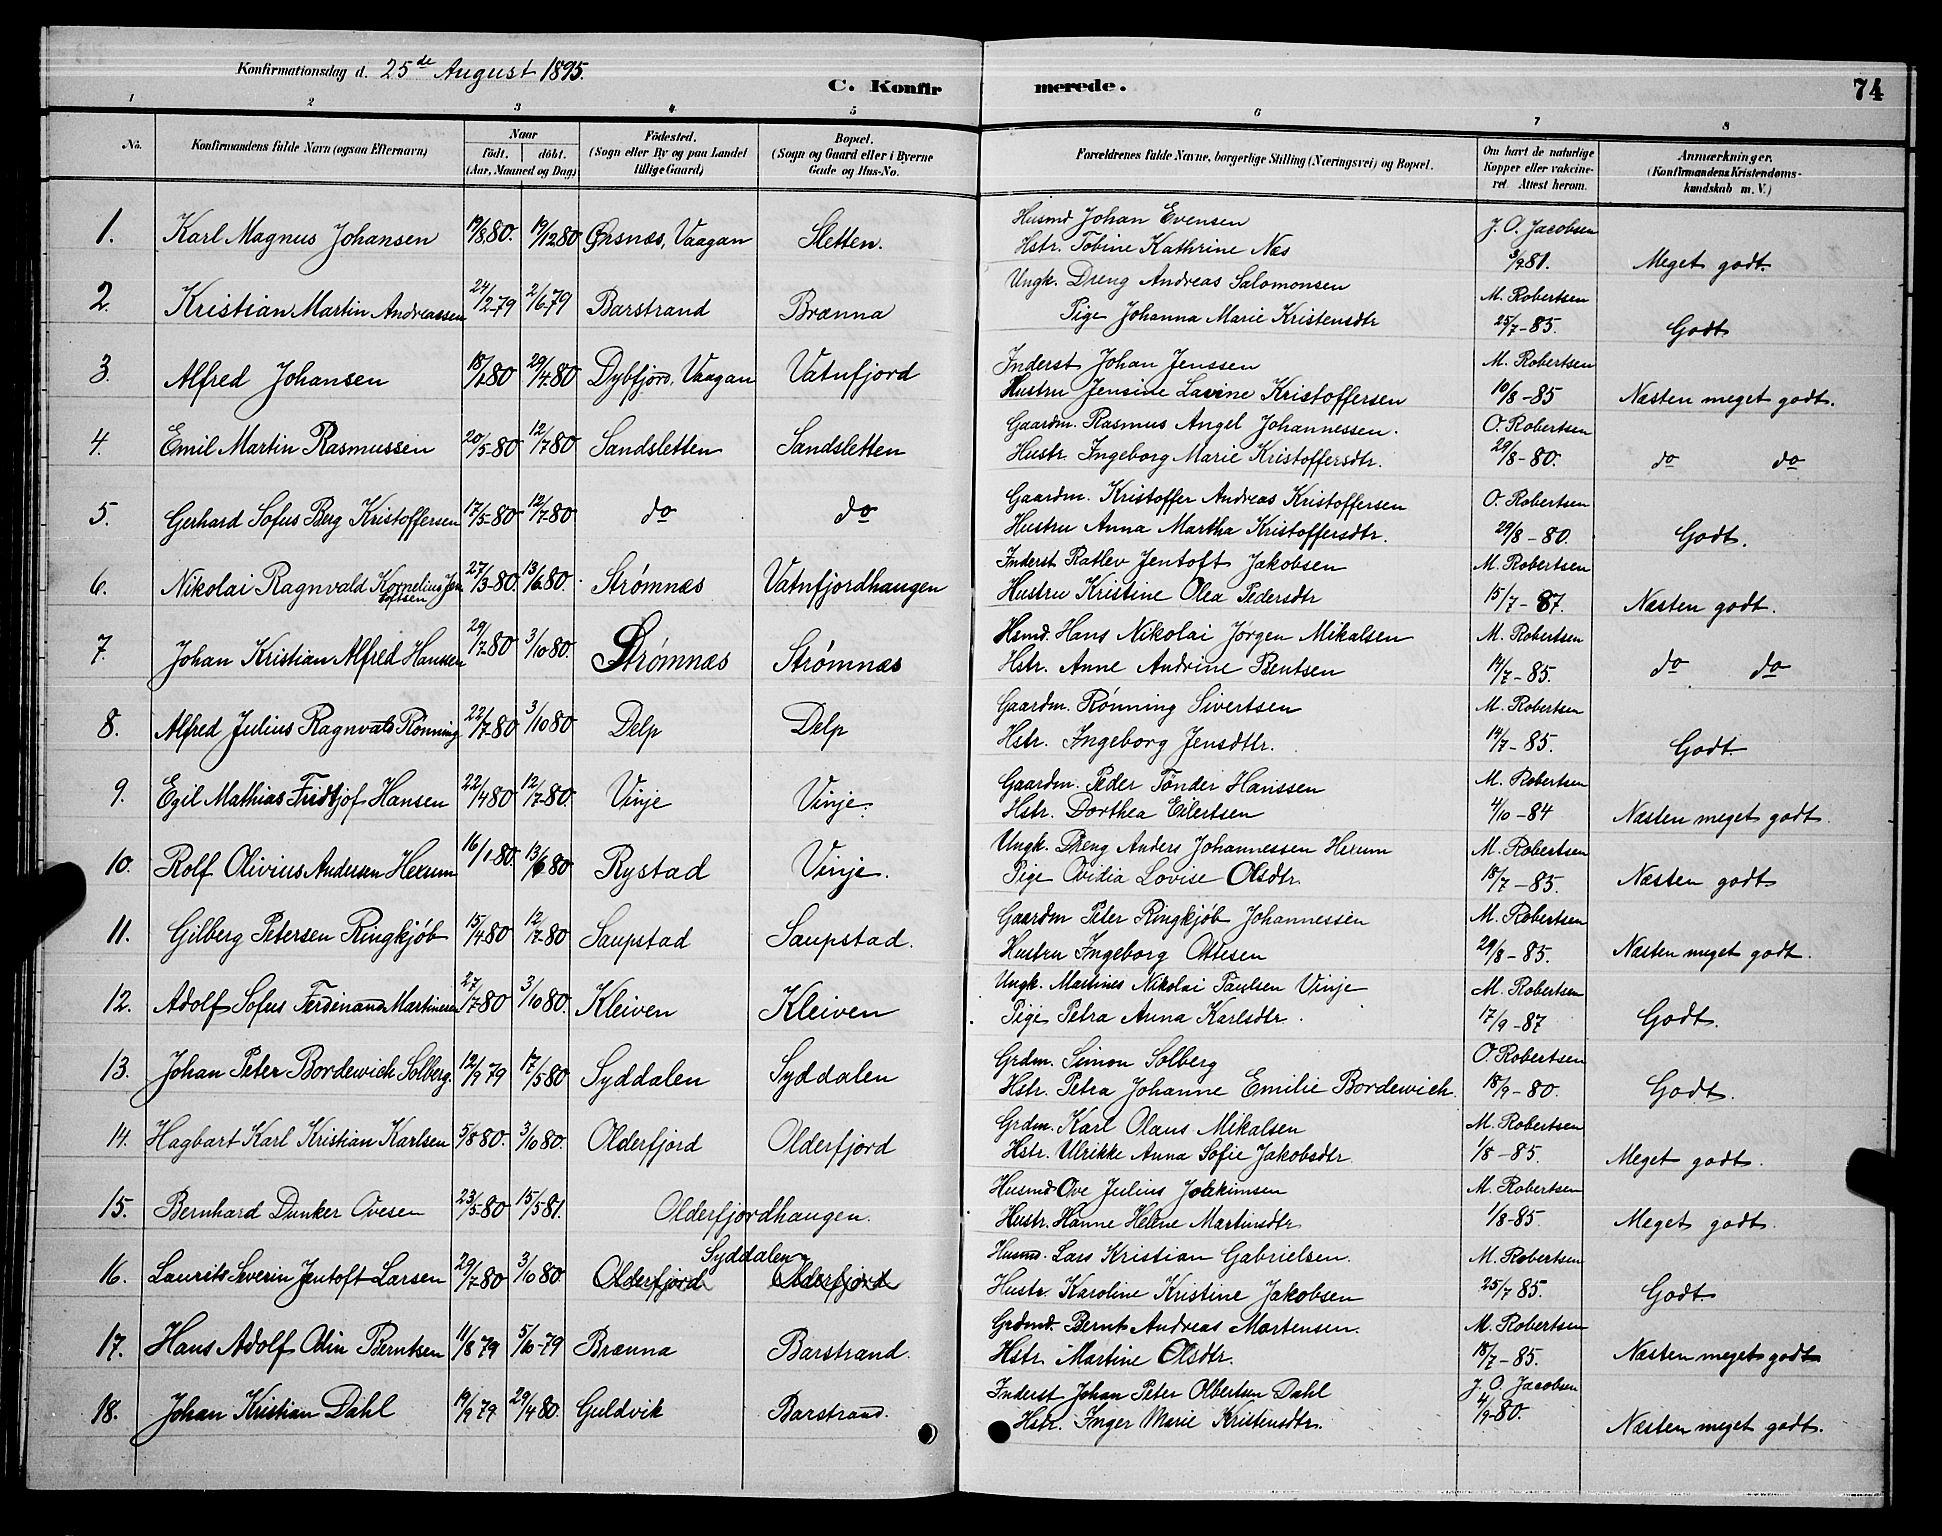 Konfirmationsdag d. 25de August 1895.
C. Konfirmerede. 74
1 2 3 4 5 6 7 8
No. Konfirmandens fulde Navn (ogsaa Efternavn) Naar født. døbt. (Aar, Maaned og Dag) Fødested. (Sogn eller By og paa Landet tillige Gaard) Bopæl. (Sogn og Gaard eller i Byerne Gade og Hus-No. Forældrenes fulde Navne, borgerlige Stilling (Næringsvei) og Bopæl. Om havt de naturlige Kopper eller vakcineret. Attest herom. Anmærkninger. (Konfirmandens Kristendomskundskab m. V.)
1. Karl Magnus Johansen 19/8 80. 19/12 80 Ørsnæs, Vaagan Sletten. Husmd Johan Evensen J. O. Jacobsen
Hstr. Tobine Kathrine Næs 3/9 81. Meget godt.
2. Kristian Martin Andreassen 24/2-79 2/6-79 Barstrand Brænna Ungk. Dreng Andreas Salomonsen M. Robertsen
Pige Johanna Marie Kristensdtr 25/7-85. Godt
3. Alfred Johansen 18/1 80 29/4 80 Dybfjord, Vaagan Vatnfjord Inderst Johan Jenssen M. Robertsen
Hustru Jensine Lavine Kristoffersen 10/8-85 Næsten meget godt.
4. Emil Martin Rasmussen 20/5-80 12/7 80 Sandsletten Sandsletten Gaardm. Rasmus Angel Johannessen. O. Robertsen
Hustr. Ingeborg Marie Kristoffersdtr. 29/8-80. do do
5. Gerhard Sofus Berg Kristoffersen 17/5-80 12/7-80 do do Gaardm. Kristoffer Andreas Kristoffersen O. Robertsen
Hustru Anna Martha Kristoffersdtr. 29/8-80. Godt.
6. Nikolai Ragnvald Kornelius Jentoftsen 27/3-80. 13/6 80. Strømnæs Vatnfjordhaugen Inderst Ratlev Jentoft Jakobsen M. Robertsen
Hustru Kristine Olea Pedersdtr 15/7-87. Næsten godt.
7. Johan Kristian Alfred Hanssen 29/7-80 3/10 80. Strømnæs Strømnæs Hsmd. Hans Nikolai Jørgen Mikalsen M. Robertsen
Hstr. Anne Andrine Bentsen 14/7-85. do do
8. Alfred Julius Ragnvald Rønning 22/7-80 3/10 80 Delp Delp Gaardm. Rønning Sivertsen M. Robertsen
Hstr. Ingeborg Jensdtr. 14/7-85. Godt
9. Egil Mathias Fridtjof Hansen 22/4 80 12/7-80 Vinje Vinje. Gaardm. Peder Tønder Hanssen M. Robertsen
Hstr. Dorthea Eilertsen 4/10-84 Næsten meget godt.
10. Rolf Olivius Andersen Hexum 16/1-80. 13/6 80 Rystad Vinje. Ungk. Dreng Anders Johannessen Hexum M. Robertsen
Pige Ovidia Lovise Olsdtr. 18/7-85. Næsten godt
11. Gilberg Petersen Ringkjøb 15/4-80 12/7-80 Saupstad Saupstad. Gaardm Peter Ringkjøb Johannessen M. Robertsen
Hustru Ingeborg Ottesen 29/8-85. Næsten meget godt.
12. Adolf Sofus Ferdinand Martinsen 27/7-80 3/10 80. Kleiven Kleiven Ungk. Martines Nikolai Paulsen Vinje M. Robertsen
Pige Petra Anna Karlsdtr. 17/9-87 Godt.
13. Johan Peter Bordewich Solberg. 12/9 79 17/5 80 Syddalen Syddalen Grdm. Simon Solberg O. Robertsen
Hstr. Petra Johanne Emilie Bordewich. 18/9-80. Godt.
14. Hagbart Karl Kristian Karlsen 5/8 80. 3/10 80. Olderfjord Olderfjord Grdm. Karl Olaus Mikalsen M. Robertsen
Hstr. Ulrikke Anna Sofie Jakobsdtr. 1/8-85. Meget godt.
15. Bernhard Dunker Ovesen 23/5-80 15/5 81. Olderfjordhaugen. Husmd Ove Julius Joakimsen M. Robertsen
Hustr. Hanne Helene Martinsdtr 1/8-85. Meget godt.
16. Laurits Severin Jentoft Larsen 29/7 80 3/10 80 Olderfjord Syddalen Olderfjord Husmd. Lars Kristian Gabrielsen. M. Robertsen
Hustr. Karoline Kristine Jakobsen 25/7 85. Godt.
17. Hans Adolf Odin Berntsen 11/8 79 5/10-79 Brænna Barstrand. Grdmd. Bernt Andreas Mortensen. M. Robertsen
Hstr. Martine Olsdtr. 18/7-85. Næsten meget godt
18. Johan Kristian Dahl 19/9 79 29/4 80. Guldvik Barstrand. Inderst Johan Peter Olbertsen Dahl J. O. Jacobsen
Hstr. Inger Marie Kristensdtr. 4/9-80. Næsten meget godt.